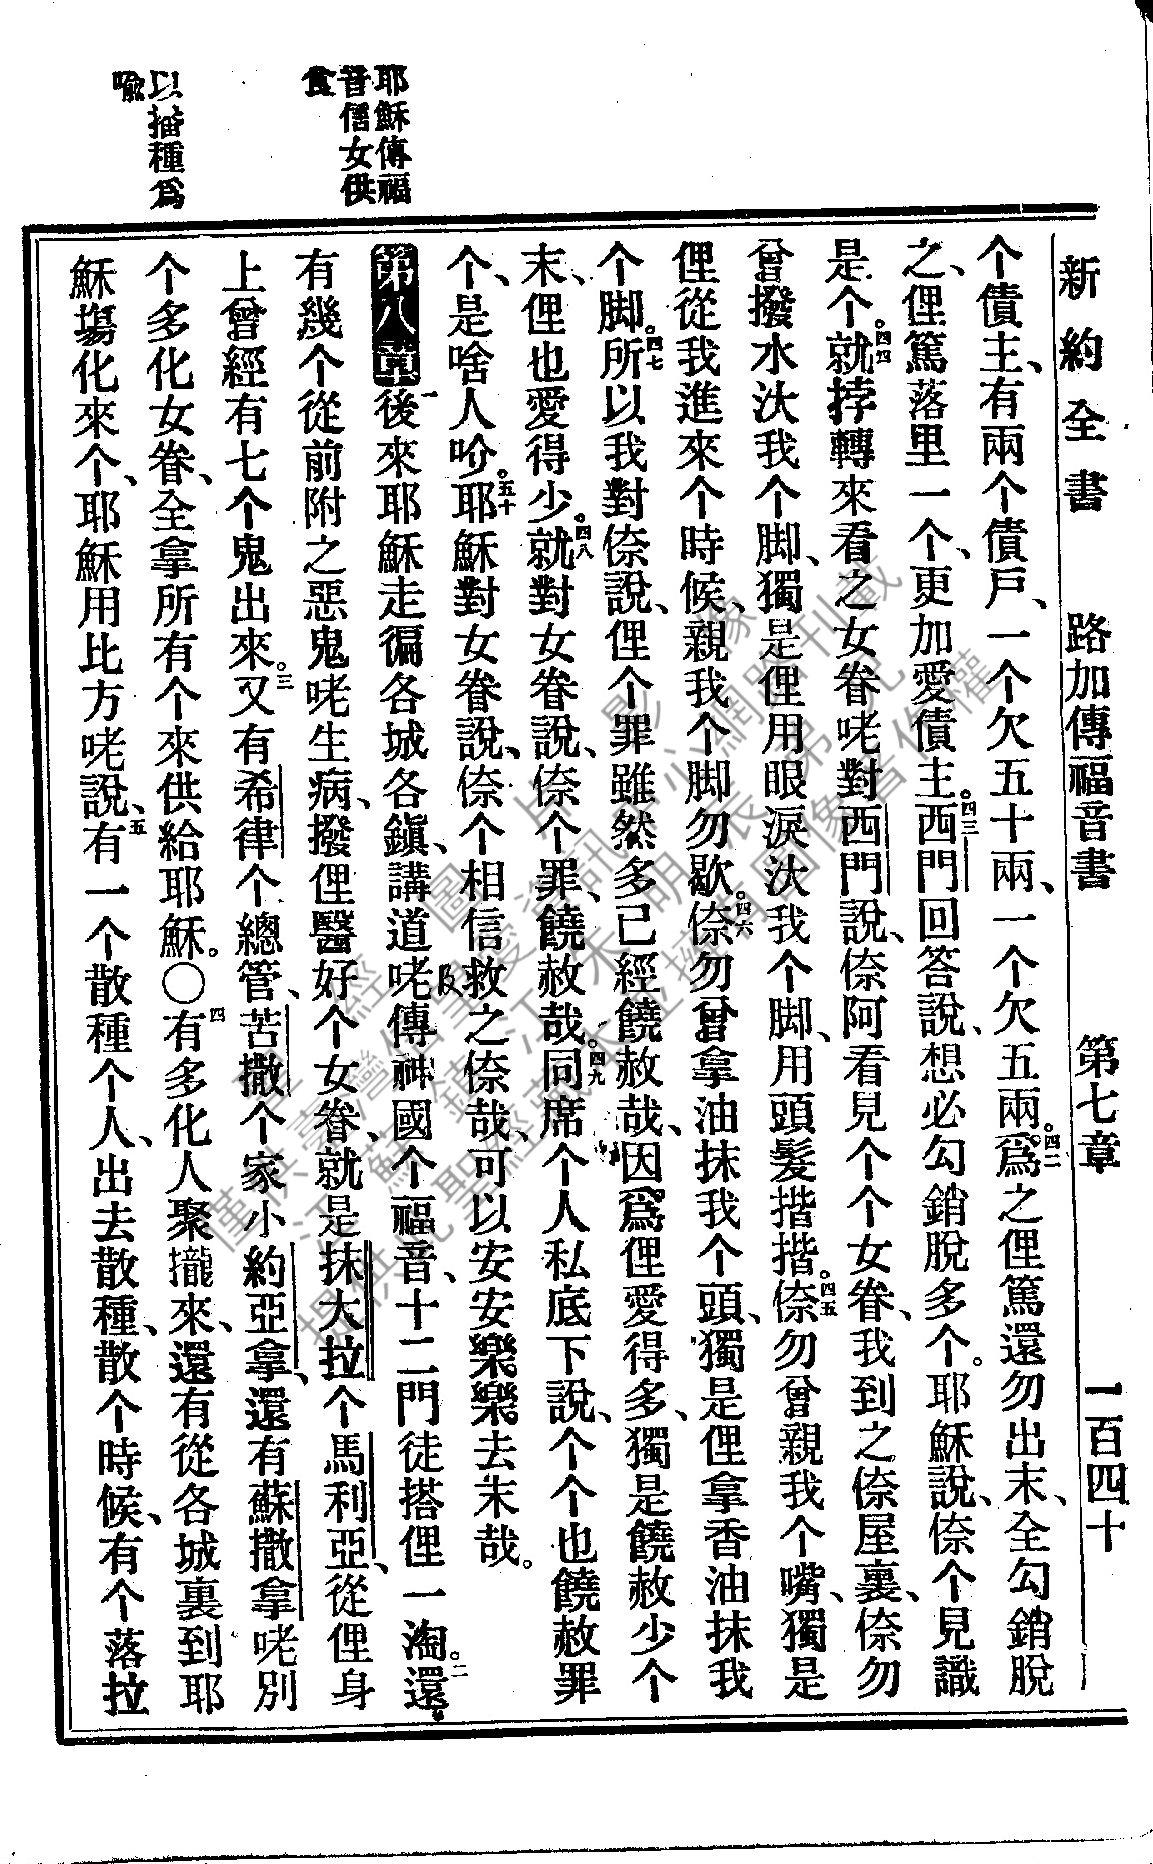 新約全書 路加傳福音書 第七章 一百四十
个債主、有兩个債戶、一个欠五十兩、一个欠五兩。四二爲之俚篤還勿出末、全勾銷脫
之、俚篤落里一个、更加愛債主。四三西門回答說、想必勾銷脫多个。耶穌說、倷个見識
是个。四四就挬轉來看之女眷咾對西門說、倷阿看見个个女眷、我到之倷屋裏、倷勿
曾撥水汏我个脚、獨是俚用眼淚汏我个脚、用頭髮揩揩。四五倷勿曾親我个嘴、獨是
俚從我進來个時候、親我个脚勿歇。四六倷勿曾拿油抹我个頭、獨是俚拿香油抹我
个脚。四七所以我對倷說、俚个罪雖然多已經饒赦哉、因爲俚愛得多、獨是饒赦少个
末、俚也愛得少。四八就對女眷說、倷个罪、饒赦哉。四九同席个人私底下說、个个也饒赦罪
个、是啥人吤。五十耶穌對女眷說、倷个相信救之倷哉、可以安安樂樂去末哉。
第八章 一後來耶穌走徧各城各鎮、講道咾傳神國个福音、十二門徒搭俚一淘。二還
有幾个從前附之惡鬼咾生病、撥俚醫好个女眷、就是抹大拉个馬利亞、從俚身
上曾經有七个鬼出來。三又有希律个總管、苦撒个家小約亞拿、還有蘇撒拿咾別
个多化女眷、全拿所有个來供給耶穌。〇四有多化人聚攏來、還有從各城裏到耶
穌塲化來个、耶穌用比方咾說、五有一个散種个人、出去散種、散个時候、有个落拉
耶穌傳福
音信女供
食
以播種爲
喩